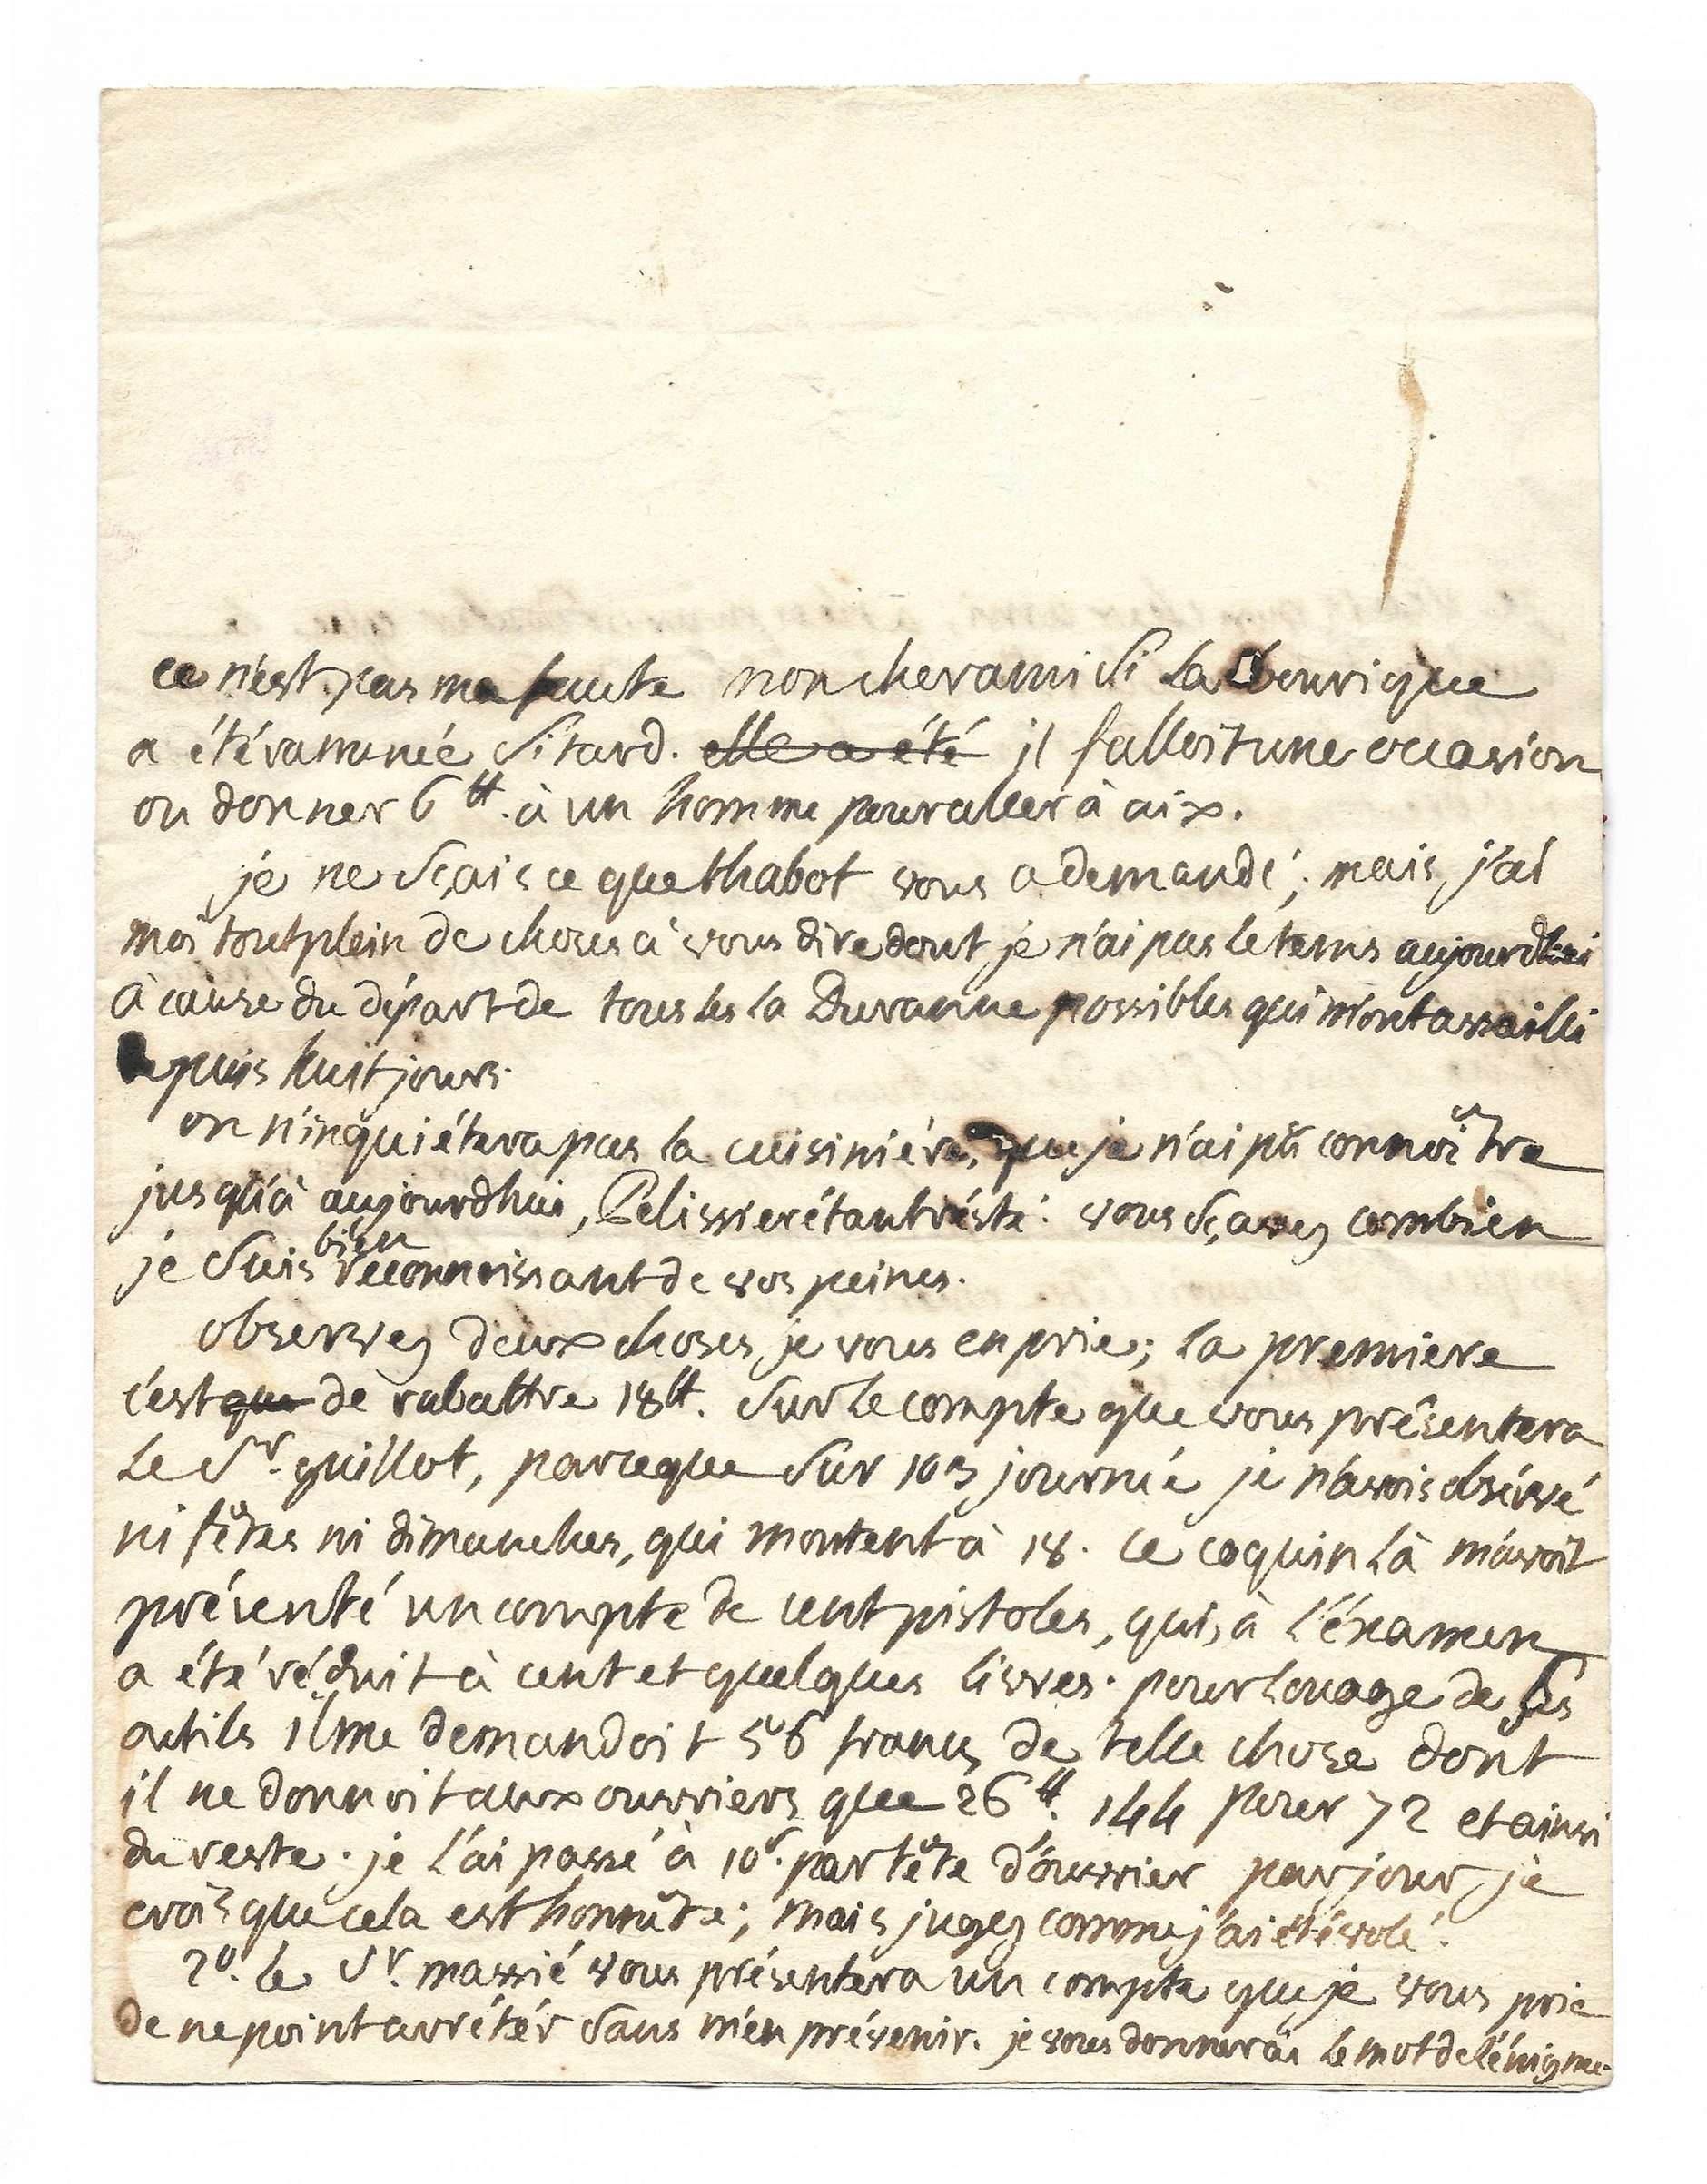 ce n'est pas ma faute mon cher ami si la bourique
a été ramenée si tard. elle a été il falloit une occasion
ou donner 6 ₶. à un homme pour aller à aix.
je ne sçais ce que thabot vous a demandé; mais j'ai
moi tout plein de choses à vous dire dont je n'ai pas le tems aujourdhui
à cause du départ de tous les la Duranne possibles qui m'ont assailli
depuis huit jours.
on n'inquiétera pas la cuisiniére, que je n'ai pû connoître
jusqu'à aujourdhui, Pelissier étant résté. vous sçavez combien
je suis bien reconnoissant de vos peines.
observez deux choses je vous en prie; la premiere
c'est que de rabattre 18 ₶. sur le compte que vous présentera
le Sr. guillot, parceque sur 103 journée je n'avois observé
ni fêtes ni dimanches, qui montent à 18. ce coquin là m'avoit
présenté un compte de cent pistoles, qui, à l'éxamen
a été réduit à cent et quelques livres. pour louage de ses
outils il me demandoit 56 francs de telle chose dont
il ne donnoit aux ouvriers que 26 ₶. 144 pour 72 et ainsi
du reste. je l'ai passé à 10s. par tête d'ouvrier par jour, je
crois que cela est honnête; mais jugez comme j'ai été volé.
2o. le Sr. massié vous présentera un compte que je vous prie
de ne point arrétér sans m'en prévenir. je vous donnerai le mot de l'énigme.